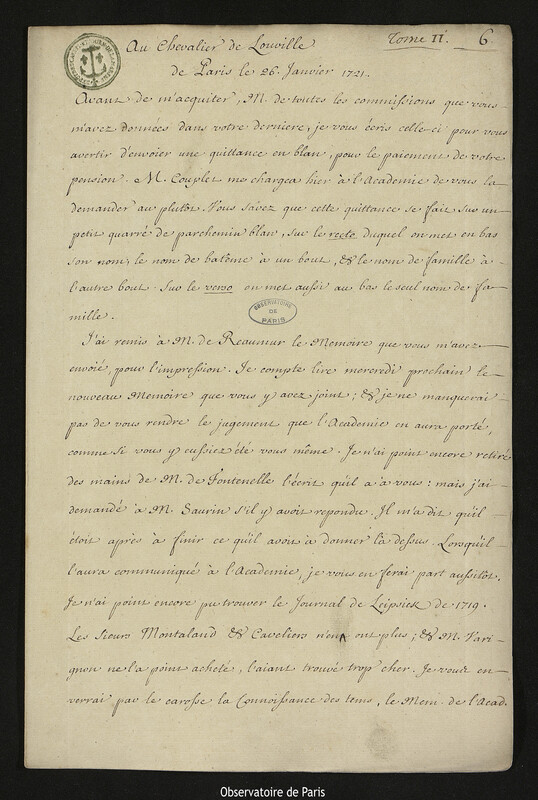 Tome II. 6.
Au Chevalier de Louville
de Paris le 26. Janvier 1721.
Avant de m'acquiter, M. de toutes les commissions que vous
m'avez données dans votre derniere, je vous écris celle-ci pour vous
avertir d'envoier une quittance en blan, pour le paiement de votre
pension. M. Couplet me chargea hier à l'Academie de vous la
demander au plutôt. Vous savez que cette quittance se fait sur un
petit quarré de parchemin blan, sur le recto duquel on met en bas
son nom, le nom de batême à un bout, & le nom de famille à
l'autre bout. Sur le verso on met aussi au bas le seul nom de fa-
mille.
OBSERVATOIRE
DE
PARIS
J'ai remis à M. de Reaumur le Memoire que vous m'avez
envoié, pour l'impression. Je compte lire mercredi prochain le
nouveau Memoire que vous y avez joint; & je ne manquerai
pas de vous rendre le jugement que l'Academie en aura porté,
comme si vous y eussiez été vous même. Je n'ai point encore retiré
des mains de M. de Fontenelle l'écrit qu'il a à vous: mais j'ai
demandé à M. Saurin s'il y avoit repondu. Il m'a dit qu'il
étoit après à finir ce qu'il avoit à donner là dessus. Lorsqu'il
l'aura communiqué à l'Academie, je vous en ferai part aussitôt.
Je n'ai point encore pu trouver le Journal de Leipsick de 1719.
Les Sieurs Montaland & Caveliers n'en ont plus; & M. Vari-
gnon ne l'a point acheté, l'aiant trouvé trop cher. Je vous en-
verrai par le carosse la Connoissance des tems, le Mem. de l'Acad.
Observatoire de Paris